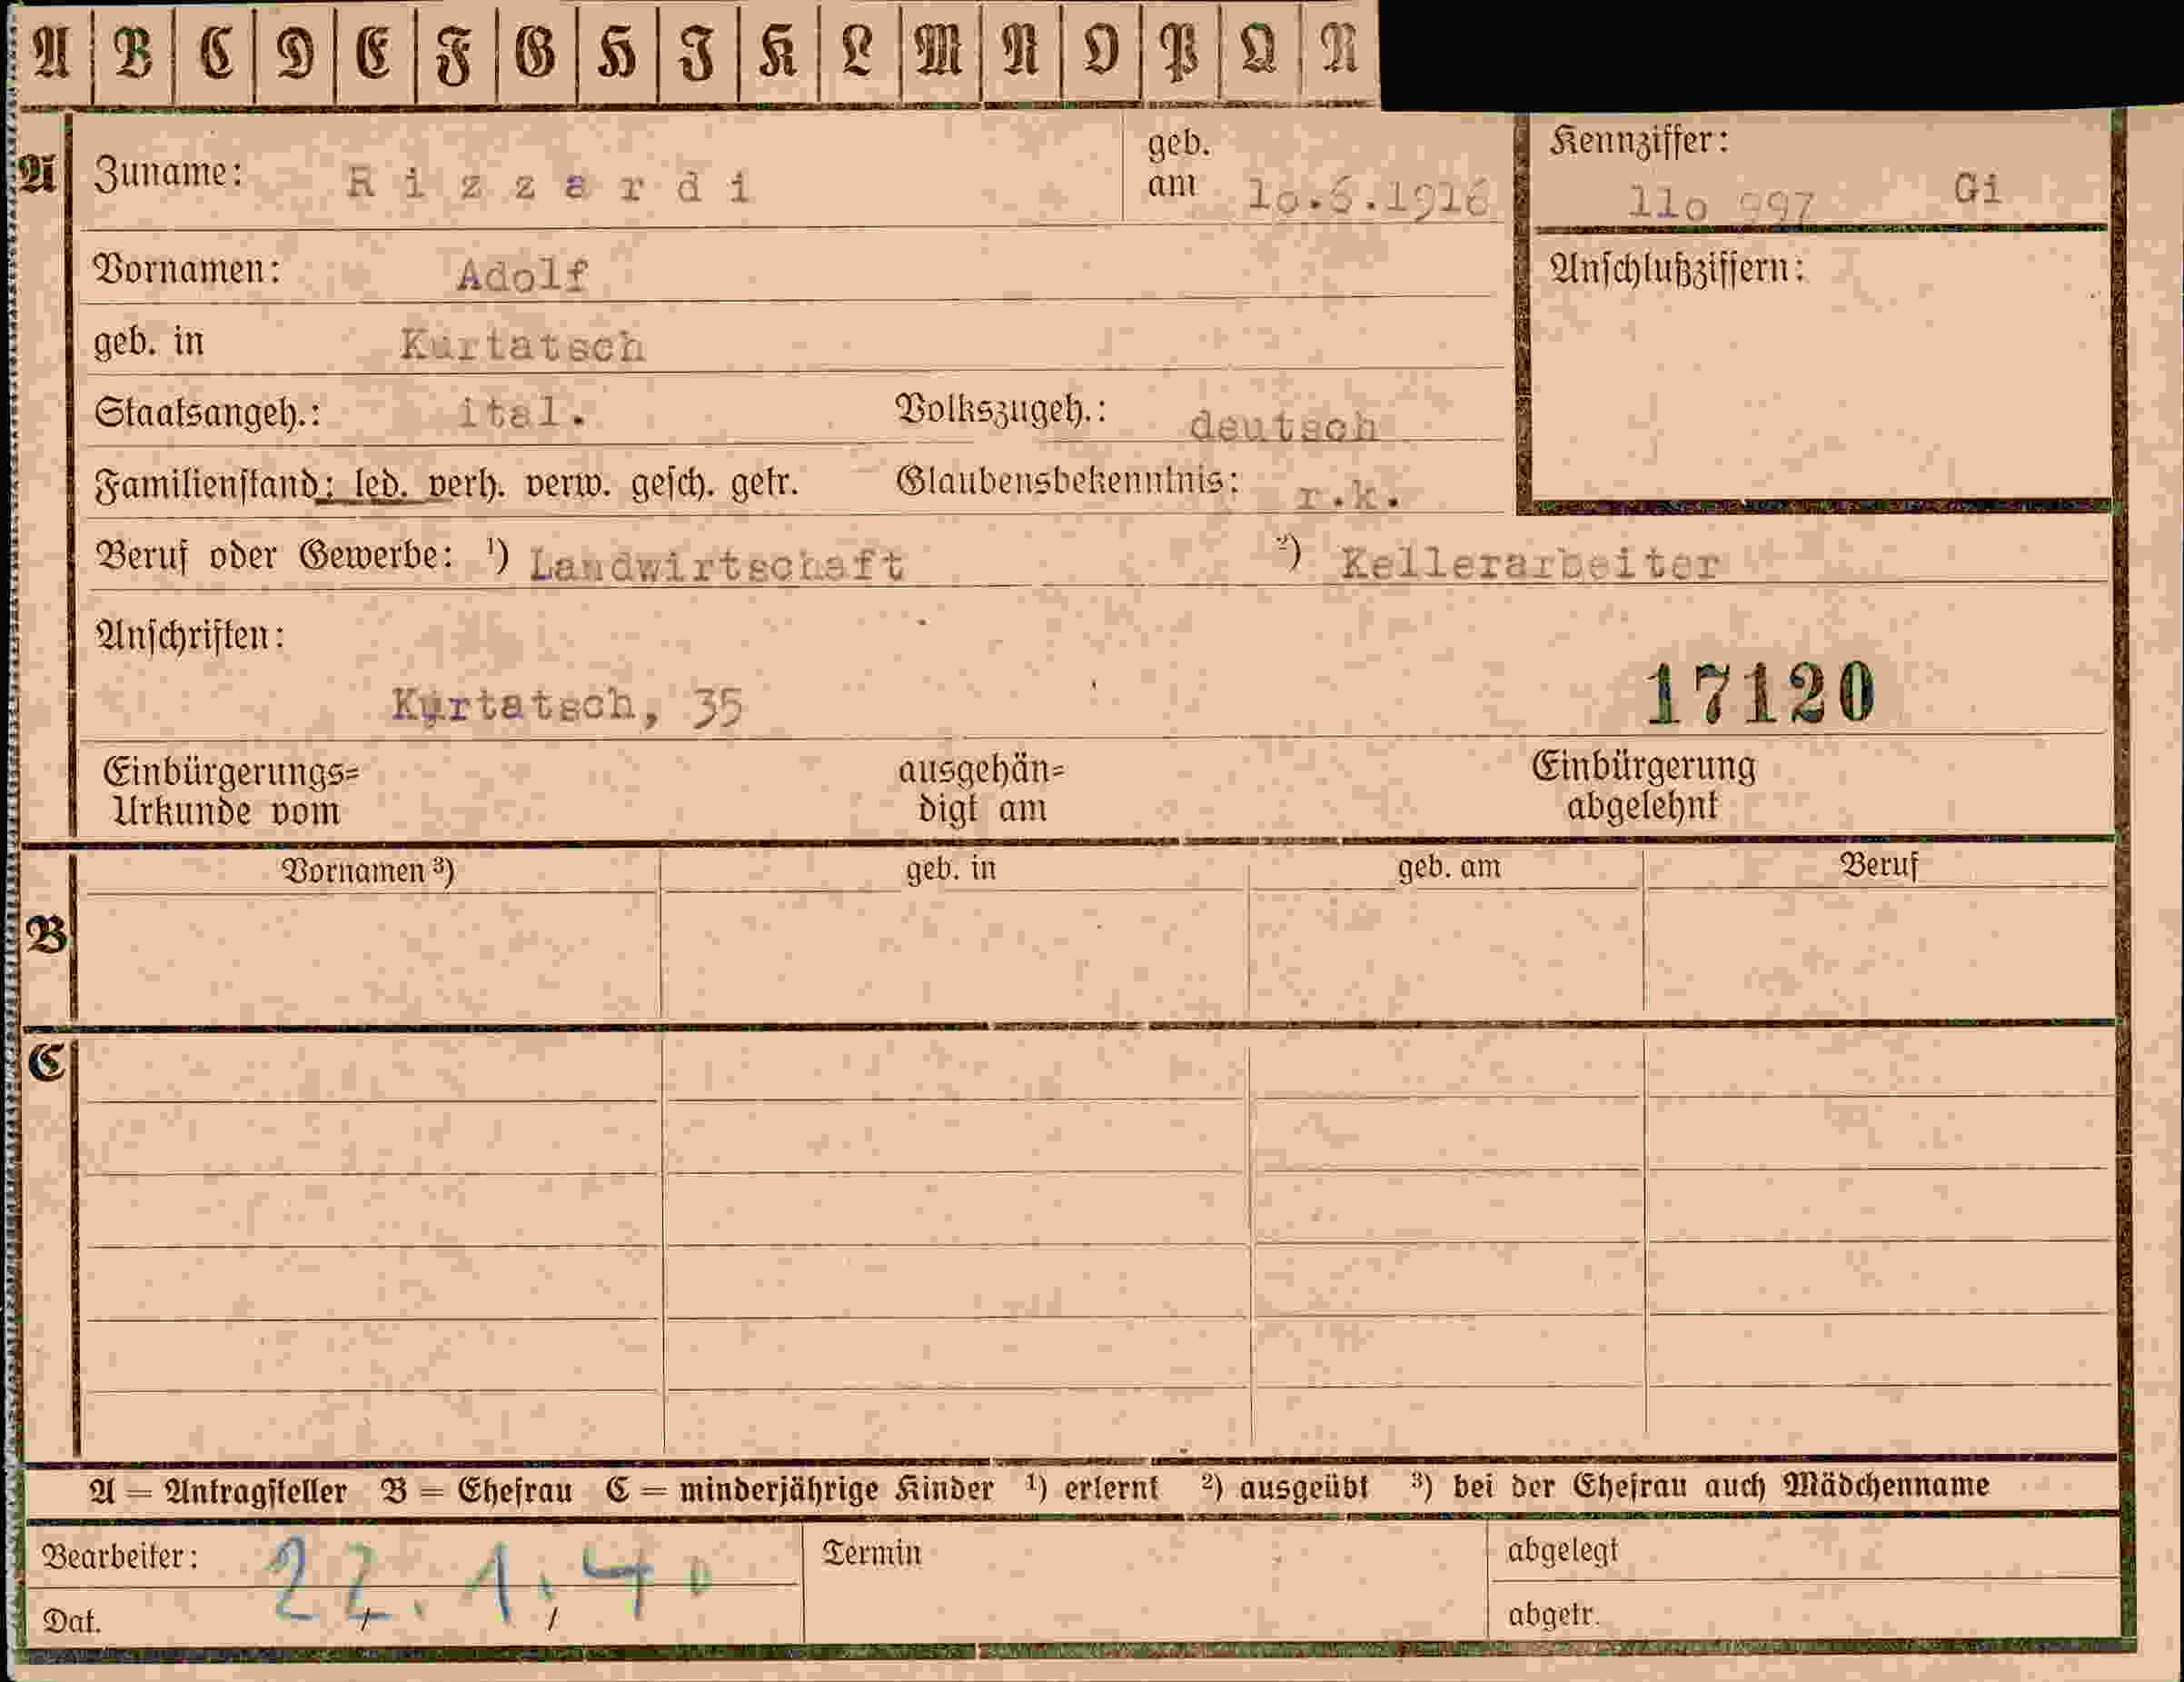 A B C D E F G H I K L M N O P Q R
A Zuname: Rizzardi geb. am 10.6.1916 Kennziffer: 11o 997 Gi
Vornamen: Adolf Anschlußziffern:
geb. in Kurtatsch
Staatsangeh.: ital. Volkszugeh.: deutsch
Familienstand: led. verh. verw. gesch. getr. Glaubensbekenntnis: r.k.
Beruf oder Gewerbe: ¹) Landwirtschaft ²) Kellerarbeiter
Anschriften:
Kurtatsch, 35 17120
Einbürgerungs= ausgehän= Einbürgerung
Urkunde vom digt am abgelehnt
Vornamen ³) geb. in geb. am Beruf
B
C
A = Antragsteller B = Ehefrau C = minderjährige Kinder ¹) erlernt ²) ausgeübt ³) bei der Ehefrau auch Mädchenname
Bearbeiter: 22.1.40 Termin abgelegt
Dat. abgetr.